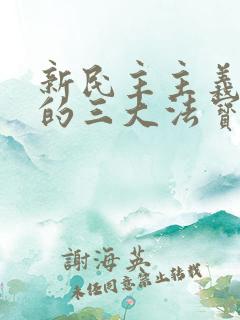 新民主主義
的三大法寶
謝海英
未經同意禁止轉載